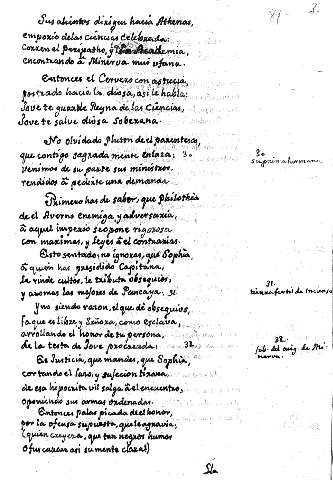 81-
3.
Sus alientos dirigen hacia Athenas,
emporio de las ciencias celebrada:
Corren el peripatho, y la Academia,
encontrando à Minerva mui ufana.
Entonces el Cervero con astucia,
postrado hacia la diosa, asi le habla:
Jove te guarde Reyna de las Ciencias,
Jove te salve diosa Soberana.
No olvidado Pluton de el parentesco,
que contigo sagrada mente enlaza: 30
venimos de su parte sus ministros
rendidos à pedirte una demanda.
Primero has de saber, que Philothea
de el Averno enemiga, y adversaria,
à aquel imperio se opone rigorosa
con maximas, y leyes à el contrarias.
Esto sentado; no ignores, que Sophia
à quien has presidido Capitana,
la rinde cultos, le tributa obsequios,
y aromas las mejores de Pancaya. 31.
Y no siendo razon, el que dè obsequios,
la que es libre, y Señora, como esclava,
arrollando el honor de tu persona,
de la testa de Jove procreada: 32.
Es Justicia, que mandes, que Sophia,
cortando el laso, y sujecion tirana
de esa hipocrita vil salga à el encuentro,
oponiendo sus armas ordenadas.
Entonces palas picada de el honor,
por la ofensa supuesta, que le agravia;
(quien creyera, que tan negros humos
ofuscaran asi su mente clara!)
30.
suprima hermana
31.
tierra fertil de incienso
32.
fab. del orig. de Mi-
nerva.